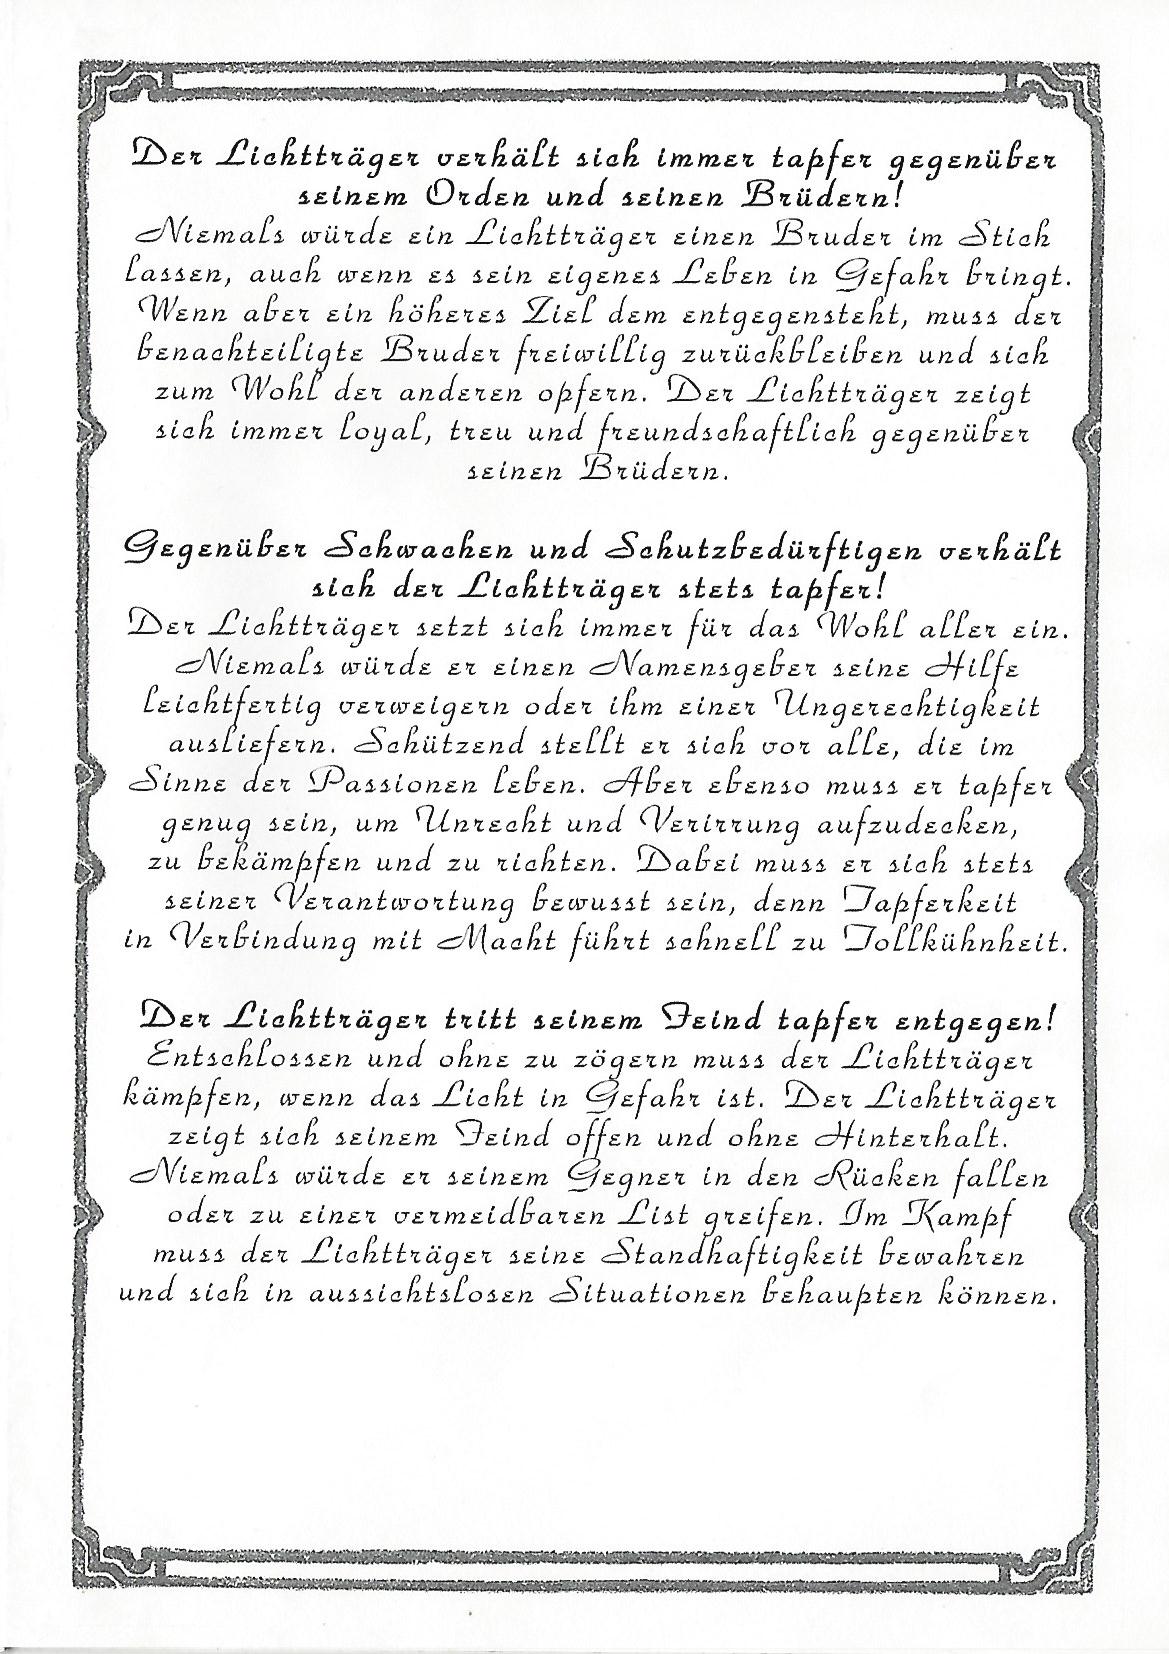 Der Lichtträger verhält sich immer tapfer gegenüber
seinem Orden und seinen Brüdern!
Niemals würde ein Lichtträger einen Bruder im Stich
lassen, auch wenn es sein eigenes Leben in Gefahr bringt.
Wenn aber ein höheres Ziel dem entgegensteht, muss der
benachteiligte Bruder freiwillig zurückbleiben und sich
zum Wohl der anderen opfern. Der Lichtträger zeigt
sich immer loyal, treu und freundschaftlich gegenüber
seinen Brüdern.
Gegenüber Schwachen und Schutzbedürftigen verhält
sich der Lichtträger stets tapfer!
Der Lichtträger setzt sich immer für das Wohl aller ein.
Niemals würde er einen Namensgeber seine Hilfe
leichtfertig verweigern oder ihm einer Ungerechtigkeit
ausliefern. Schützend stellt er sich vor alle, die im
Sinne der Passionen leben. Aber ebenso muss er tapfer
genug sein, um Unrecht und Verirrung aufzudecken,
zu bekämpfen und zu richten. Dabei muss er sich stets
seiner Verantwortung bewusst sein, denn Tapferkeit
in Verbindung mit Macht führt schnell zu Tollkühnheit.
Der Lichtträger tritt seinem Feind tapfer entgegen!
Entschlossen und ohne zu zögern muss der Lichtträger
kämpfen, wenn das Licht in Gefahr ist. Der Lichtträger
zeigt sich seinem Feind offen und ohne Hinterhalt.
Niemals würde er seinem Gegner in den Rücken fallen
oder zu einer vermeidbaren List greifen. Im Kampf
muss der Lichtträger seine Standhaftigkeit bewahren
und sich in aussichtslosen Situationen behaupten können.